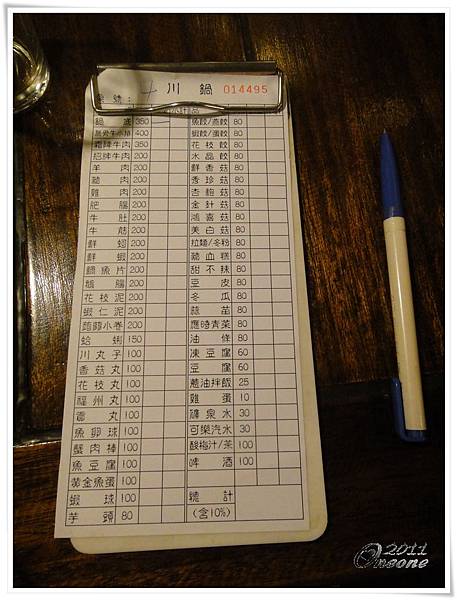 川 鍋 014495
桌號：
鍋底 350
無骨牛小排 400
霜降牛肉 350
招牌牛肉 200
羊肉 200
豬肉 200
雞肉 200
肥腸 200
牛肚 200
牛筋 200
鮮蚵 200
鮮蝦 200
鯛魚片 200
鴨腸 200
花枝泥 200
蝦仁泥 200
蒟蒻小卷 200
蛤蜊 150
川丸子 100
香菇丸 100
花枝丸 100
福州丸 100
貢丸 100
魚卵球 100
蟹肉棒 100
魚豆腐 100
黃金魚蛋 100
蝦球 100
芋頭 80
魚餃/燕餃 80
蝦餃/蛋餃 80
花枝餃 80
水晶餃 80
鮮香菇 80
秀珍菇 80
杏鮑菇 80
金針菇 80
鴻喜菇 80
美白菇 80
拉麵/冬粉 80
豬血糕 80
甜不辣 80
豆皮 80
冬瓜 80
蒜苗 80
應時青菜 80
油條 80
凍豆腐 60
豆腐 60
蔥油拌飯 25
雞蛋 10
礦泉水 30
可樂汽水 30
酸梅汁/茶 100
啤酒 100
總計
(含10%)
2011
Oneone